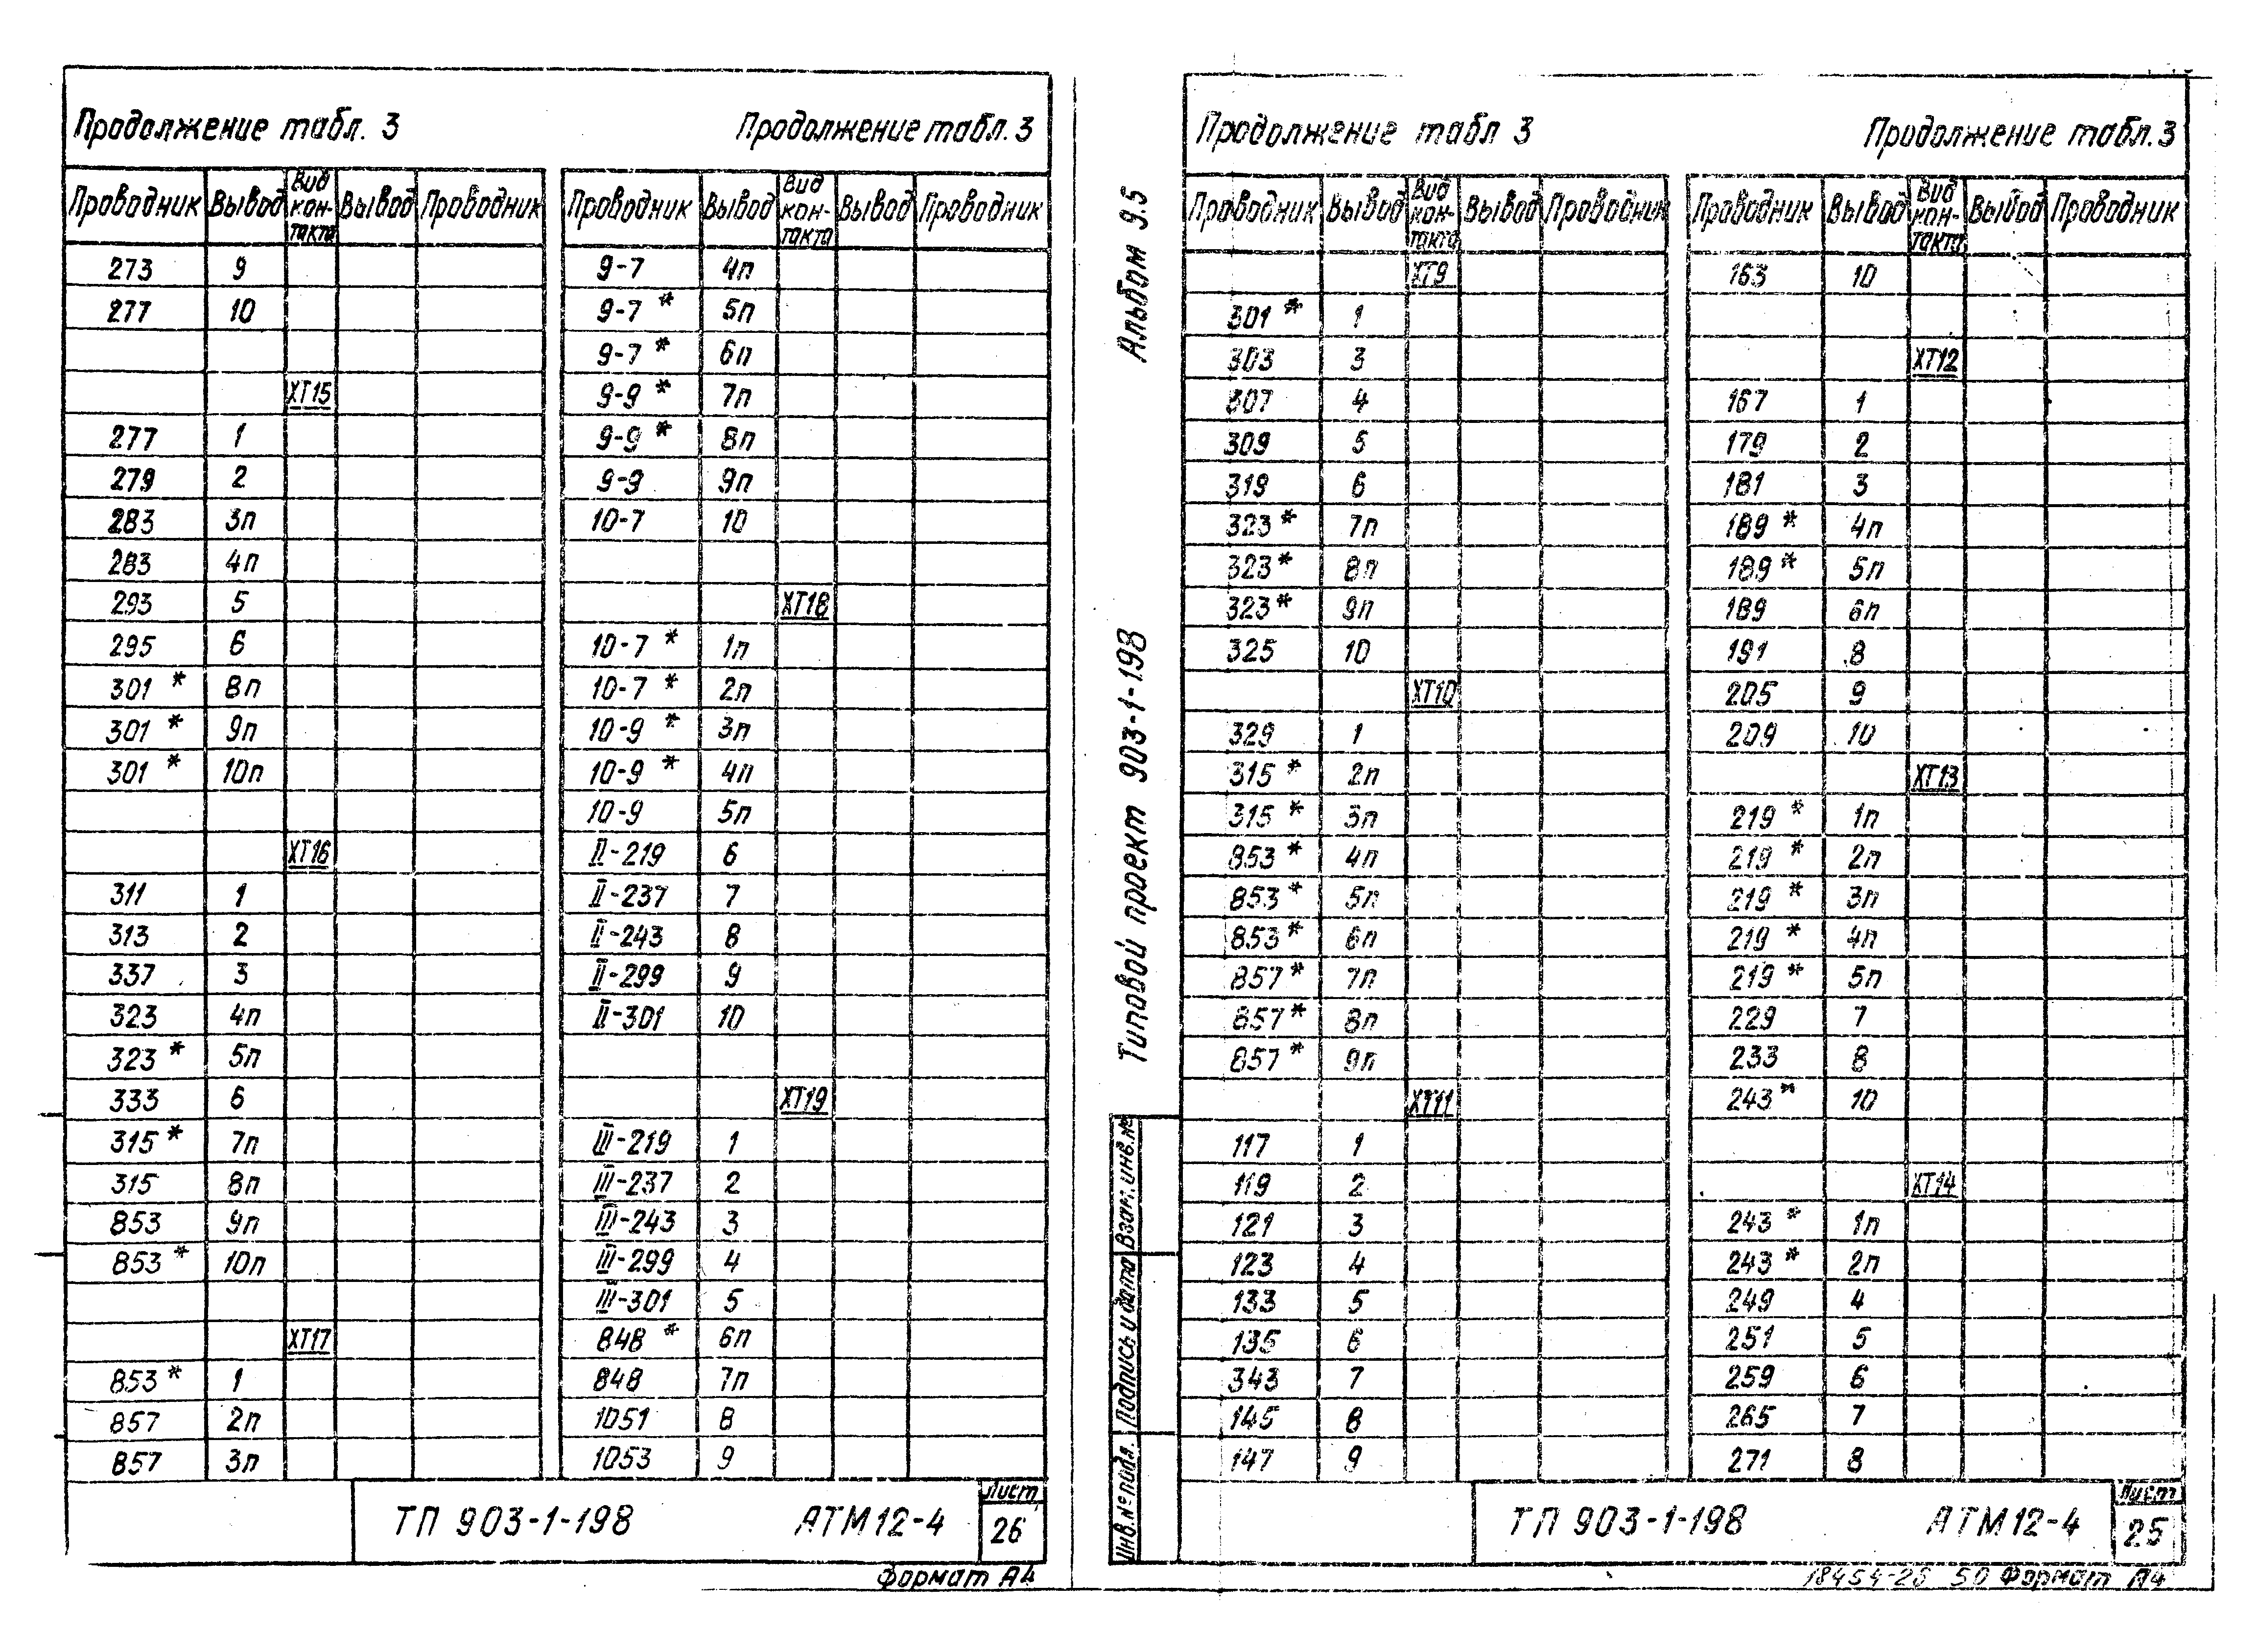 Продолжение табл. 3
Проводник Вывод Вид кон-такта Вывод Проводник
273 9
277 10
ХТ15
277 1
279 2
283 3п
283 4п
293 5
295 6
301 * 8п
301 * 9п
301 * 10п
ХТ16
311 1
313 2
337 3
323 4п
323 * 5п
333 6
315 * 7п
315 8п
853 9п
853 * 10п
ХТ17
853 * 1
857 2п
857 3п
Продолжение табл. 3
Проводник Вывод Вид кон-такта Вывод Проводник
9-7 4п
9-7 * 5п
9-7 * 6п
9-9 * 7п
9-9 * 8п
9-9 9п
10-7 10
ХТ18
10-7 * 1п
10-7 * 2п
10-9 * 3п
10-9 * 4п
10-9 5п
II-219 6
II-237 7
II-243 8
II-299 9
II-301 10
ХТ19
III-219 1
III-237 2
III-243 3
III-299 4
III-301 5
848 * 6п
848 7п
1051 8
1053 9
ТП 903-1-198 АТМ12-4
Лист
26
Формат А4
Альбом 9.5
Типовой проект 903-1-198
Взам. инв. №
Подпись и дата
Инв. № подл.
Продолжение табл 3
Проводник Вывод Вид кон-такта Вывод Проводник
ХТ9
301 * 1
303 3
307 4
309 5
319 6
323 * 7п
323 * 8п
323 * 9п
325 10
ХТ10
329 1
315 * 2п
315 * 3п
853 * 4п
853 * 5п
853 * 6п
857 * 7п
857 * 8п
857 * 9п
ХТ11
117 1
119 2
121 3
123 4
133 5
135 6
343 7
145 8
147 9
Продолжение табл. 3
Проводник Вывод Вид кон-такта Вывод Проводник
163 10
ХТ12
167 1
179 2
181 3
189 * 4п
189 * 5п
189 6п
191 8
205 9
209 10
ХТ13
219 * 1п
219 * 2п
219 * 3п
219 * 4п
219 * 5п
229 7
233 8
243 * 10
ХТ14
243 * 1п
243 * 2п
249 4
251 5
259 6
265 7
271 8
ТП 903-1-198 АТМ12-4
Лист
25
18454-26 50 Формат А4